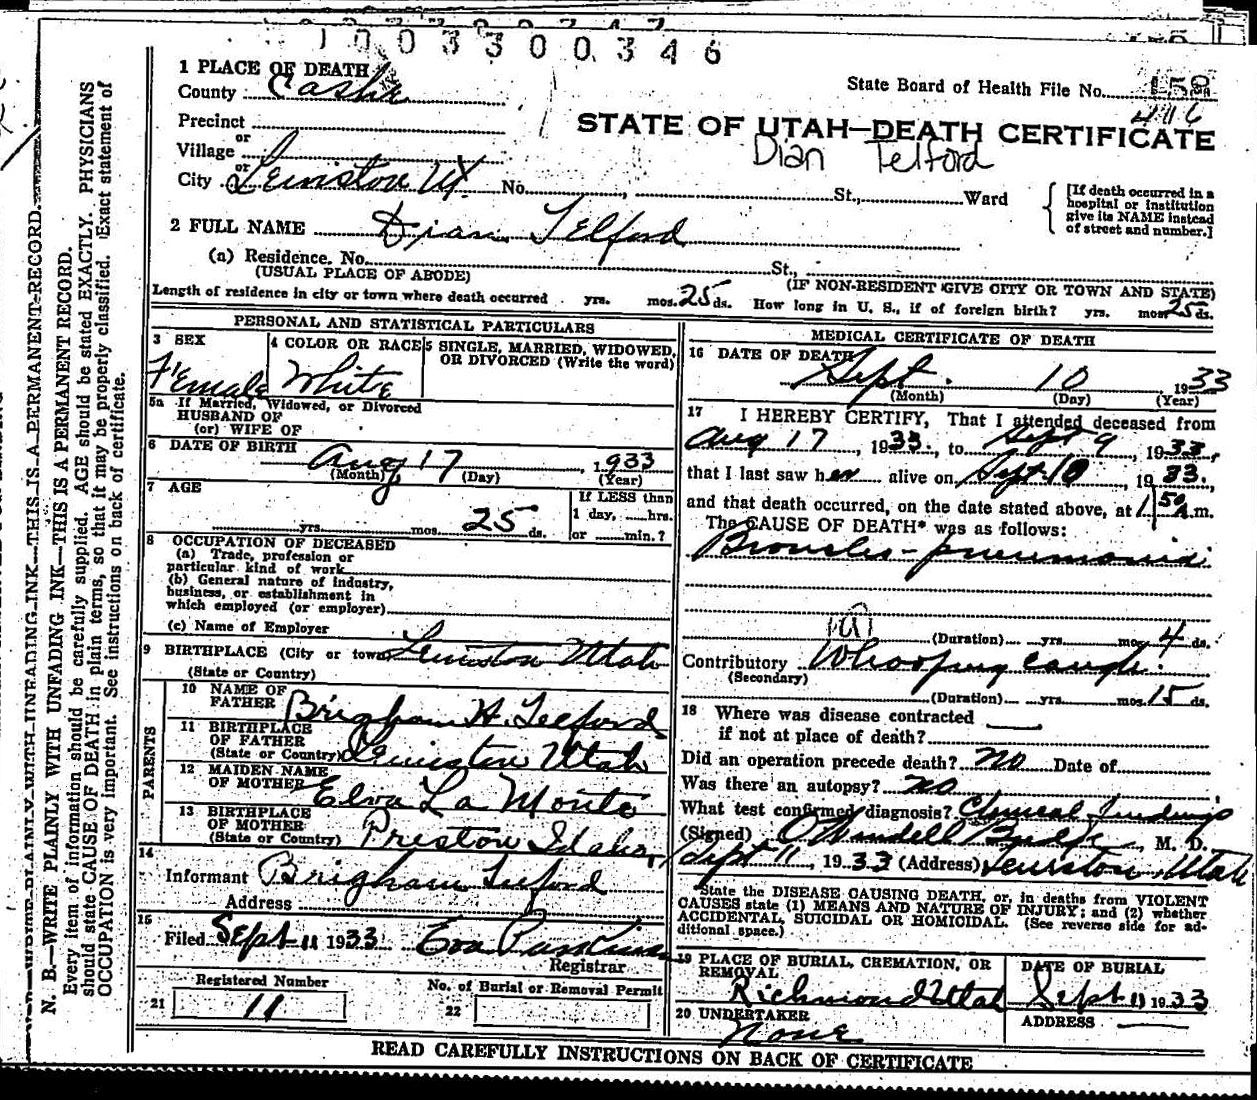 1003300346
1 PLACE OF DEATH
County Cashe
State Board of Health File No. 158
416
Precinct
or
Village
or
City Lewiston Ut. No. , St., Ward
STATE OF UTAH—DEATH CERTIFICATE
Dian Telford
{ [If death occurred in a
hospital or institution
give its NAME instead
of street and number.]
2 FULL NAME Dian Telford
(a) Residence. No. St.,
(USUAL PLACE OF ABODE) (IF NON-RESIDENT GIVE CITY OR TOWN AND STATE)
Length of residence in city or town where death occurred yrs. mos. 25 ds. How long in U. S., if of foreign birth? yrs. mos. 25 ds.
PERSONAL AND STATISTICAL PARTICULARS
3 SEX
Female
4 COLOR OR RACE
White
5 SINGLE, MARRIED, WIDOWED,
OR DIVORCED (Write the word)
5a If Married, Widowed, or Divorced
HUSBAND OF
(or) WIFE OF
6 DATE OF BIRTH
Aug 17, 1933
(Month) (Day) (Year)
7 AGE
yrs. mos. 25 ds.
If LESS than
1 day, ....hrs.
or ......min.?
8 OCCUPATION OF DECEASED
(a) Trade, profession or
particular kind of work
(b) General nature of industry,
business, or establishment in
which employed (or employer)
(c) Name of Employer
9 BIRTHPLACE (City or town) Lewiston Utah
(State or Country)
PARENTS
10 NAME OF
FATHER Brigham H. Telford
11 BIRTHPLACE
OF FATHER
(State or Country) Lewiston Utah
12 MAIDEN NAME
OF MOTHER Elva La Monte
13 BIRTHPLACE
OF MOTHER
(State or Country) Preston Idaho
14
Informant Brigham Telford
Address
15
Filed Sept 11 1933 Eva
Registrar
Registered Number
21 11
No. of Burial or Removal Permit
22
MEDICAL CERTIFICATE OF DEATH
16 DATE OF DEATH
Sept. 10 1933
(Month) (Day) (Year)
17 I HEREBY CERTIFY, That I attended deceased from
Aug 17, 1933, to Sept 9, 1933,
that I last saw her alive on Sept. 10, 1933,
and that death occurred, on the date stated above, at 1 50 A.m.
The CAUSE OF DEATH* was as follows:
Broncho-pneumonia
(a)
(Duration) yrs. mos. 4 ds.
Contributory Whooping cough.
(Secondary)
(Duration) yrs. mos. 15 ds.
18 Where was disease contracted
if not at place of death?
Did an operation precede death? no Date of
Was there an autopsy? no
What test confirmed diagnosis? Clinical findings
(Signed) O Wendell Budge, M. D.
Sept 11, 1933 (Address) Lewiston, Utah
State the DISEASE CAUSING DEATH, or, in deaths from VIOLENT
CAUSES state (1) MEANS AND NATURE OF INJURY; and (2) whether
ACCIDENTAL, SUICIDAL OR HOMICIDAL. (See reverse side for ad-
ditional space.)
19 PLACE OF BURIAL, CREMATION, OR
REMOVAL
Richmond Utah
DATE OF BURIAL
Sept 11 1933
20 UNDERTAKER
None
ADDRESS
READ CAREFULLY INSTRUCTIONS ON BACK OF CERTIFICATE
N. B.—WRITE PLAINLY WITH UNFADING INK—THIS IS A PERMANENT RECORD.
Every item of information should be carefully supplied. AGE should be stated EXACTLY. PHYSICIANS
should state CAUSE OF DEATH in plain terms, so that it may be properly classified. Exact statement of
OCCUPATION is very important. See instructions on back of certificate.